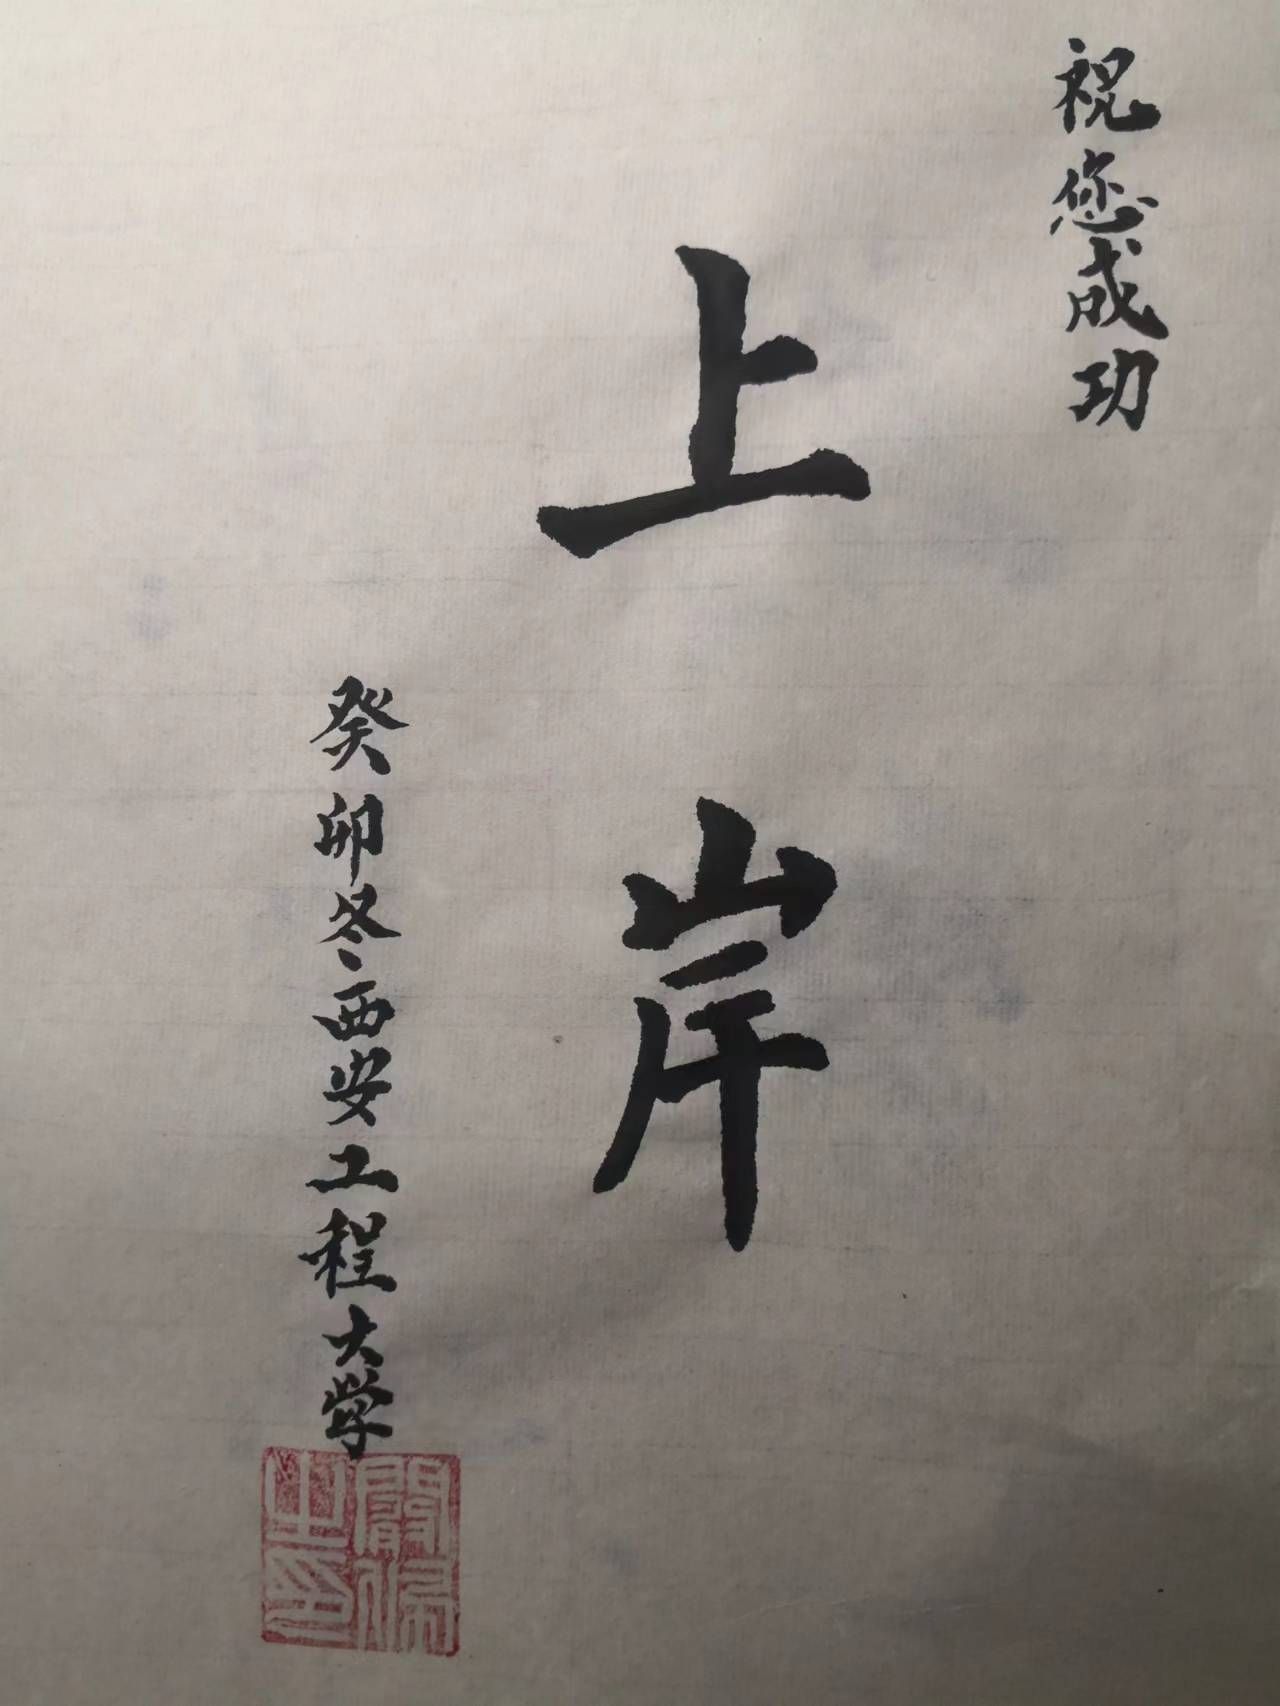 祝您成功
上岸
癸卯冬西安工程大学